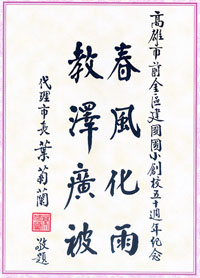 高雄市前金區建國國小創校五十週年紀念
春風化雨
教澤廣被
代理市長 葉菊蘭 敬題